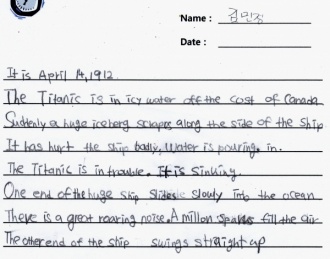 Name : 김민정
Date :
It is April 14, 1912.
The Titanic is in icy water off the cost of Canada.
Suddenly a huge iceberg scrapes along the side of the ship
It has hurt the ship badly, Water is pouring. in.
The Titanic is in trouble. It is sinking.
One end of the huge ship slides slowly into the ocean
There is a great roaring noise. A million sparks fill the air
The other end of the ship swings straight up